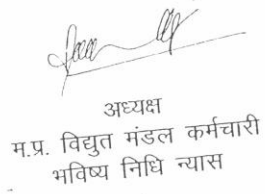 अध्यक्ष
म.प्र. विद्युत मंडल कर्मचारी
भविष्य निधि न्यास